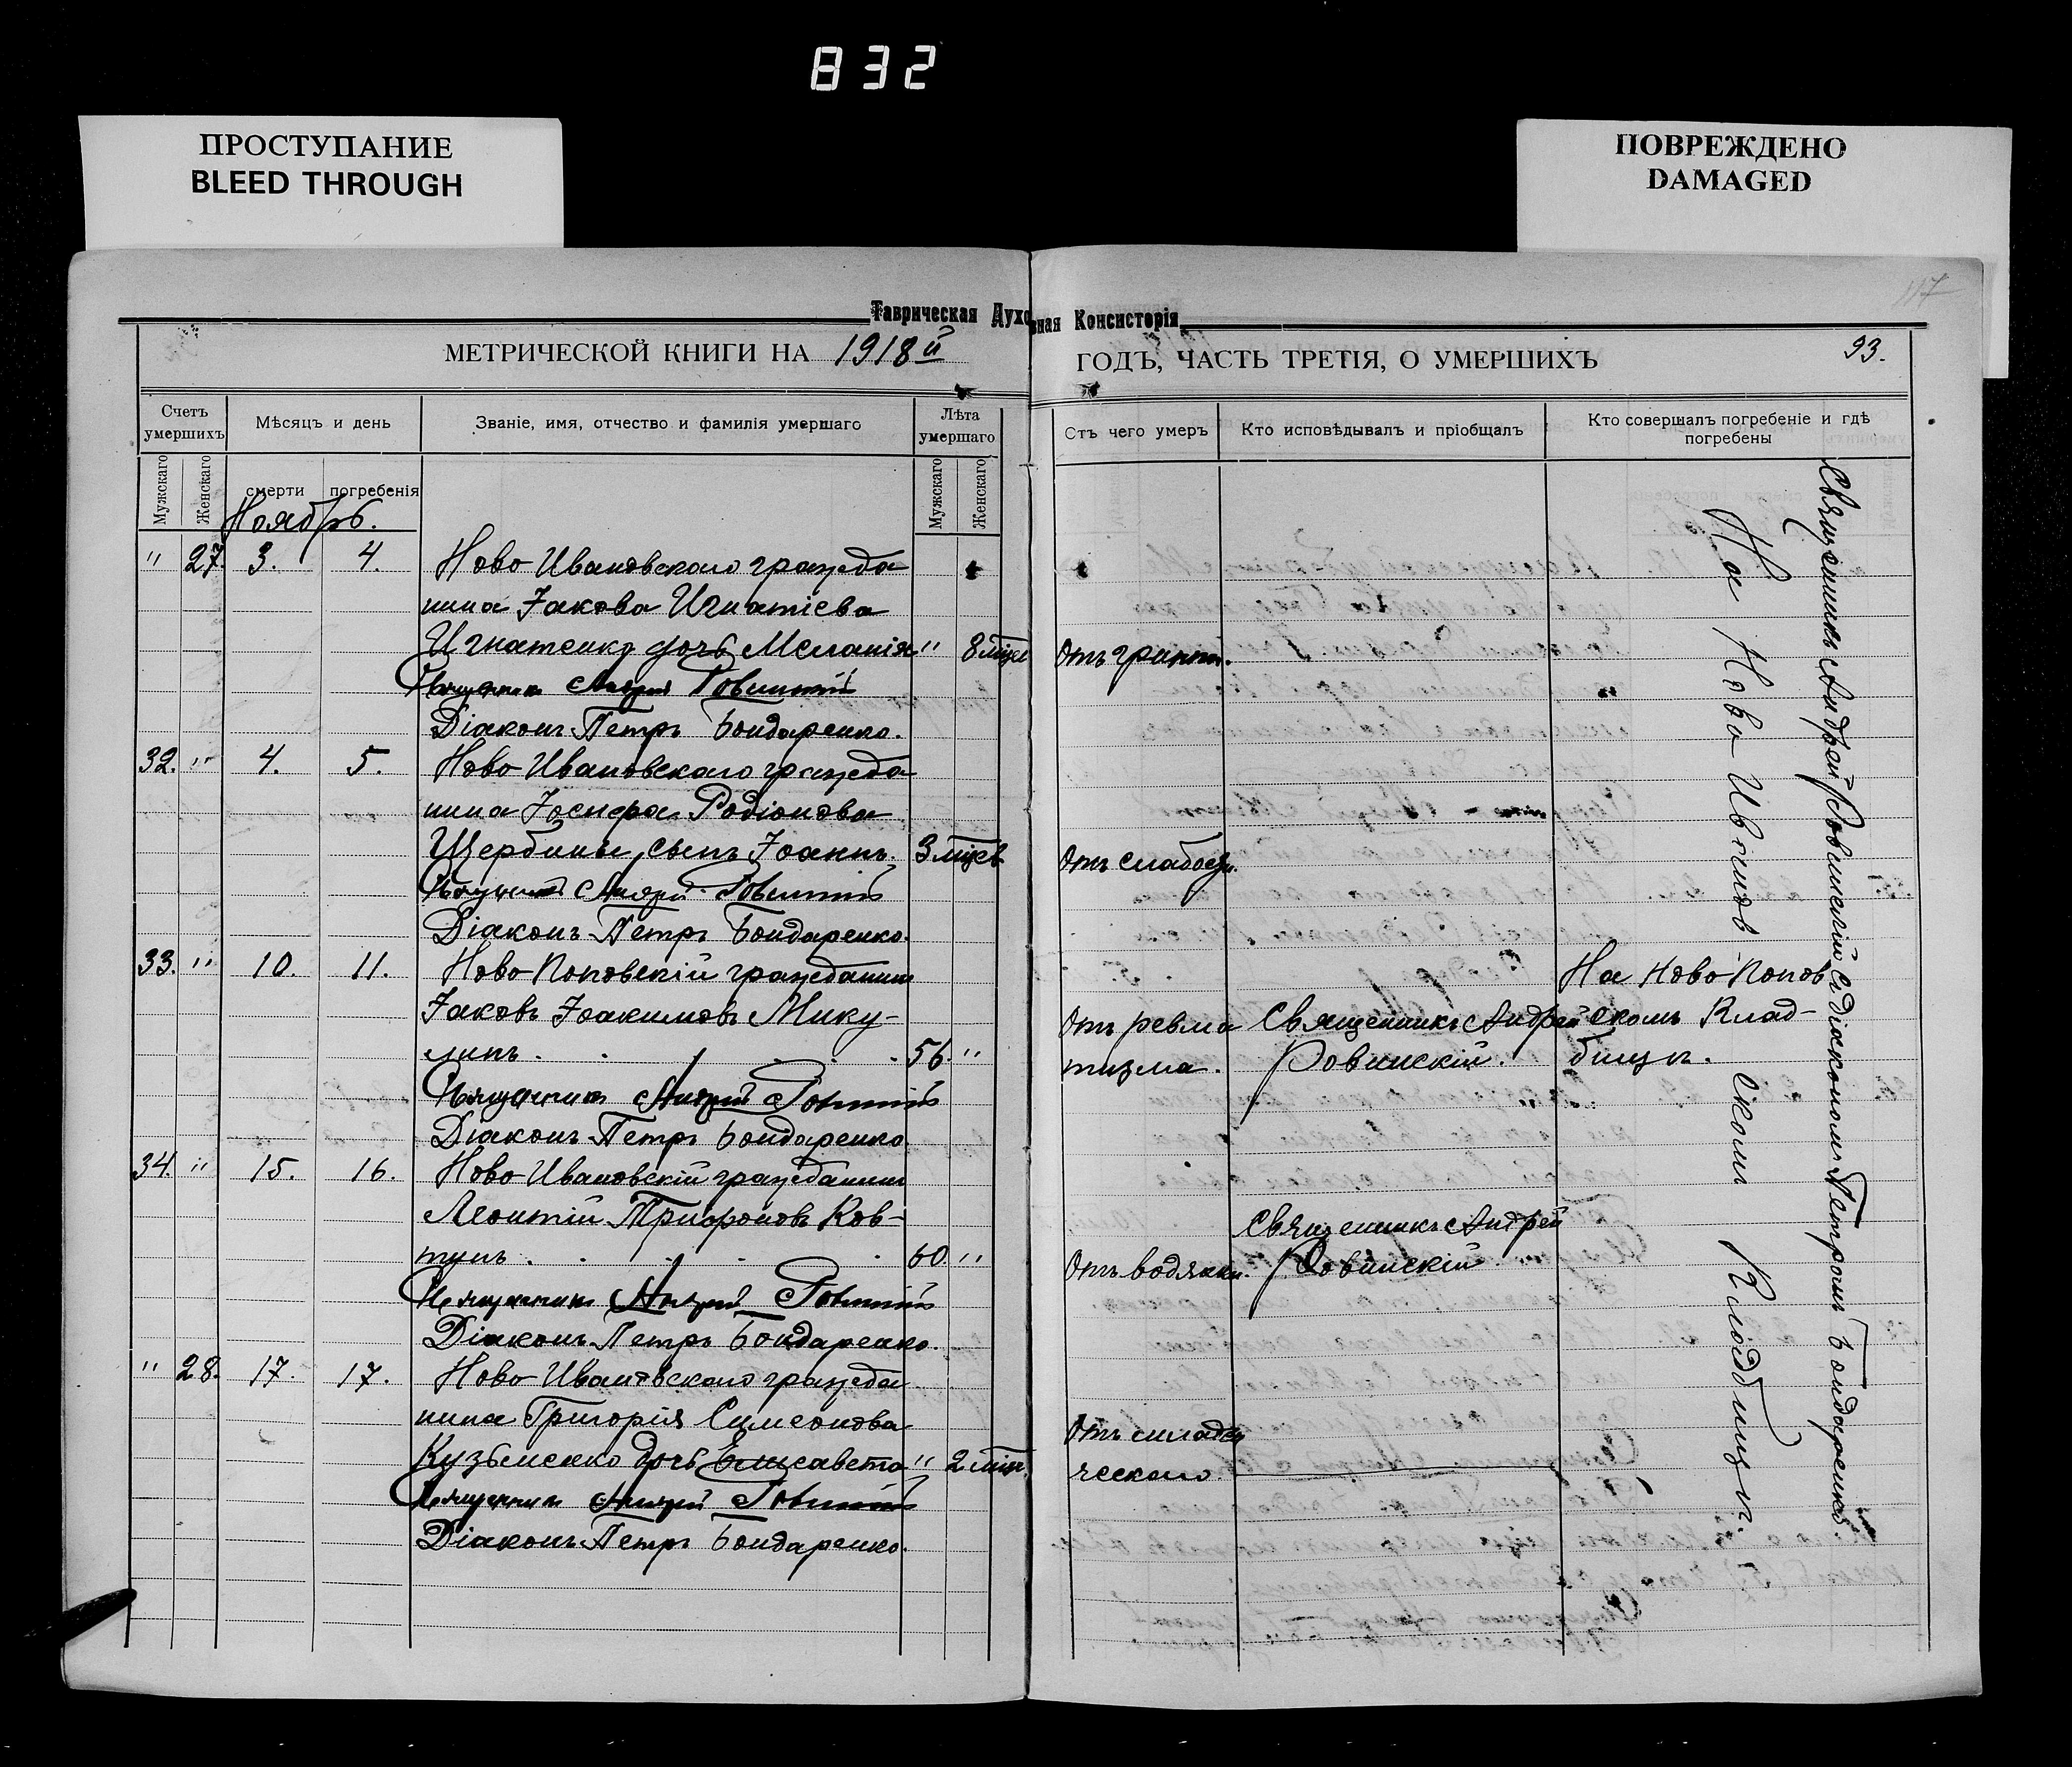 832
ПРОСТУПАНИЕ
BLEED THROUGH
ПОВРЕЖДЕНО
DAMAGED
117
Таврическая Духовная Консисторія
МЕТРИЧЕСКОЙ КНИГИ НА 1918й ГОДЪ, ЧАСТЬ ТРЕТІЯ, О УМЕРШИХЪ
93.
Счетъ умершихъ
Мужскаго
Женскаго
Мѣсяцъ и день
смерти
погребенія
Званіе, имя, отчество и фамилія умершаго
Лѣта умершаго
Мужскаго
Женскаго
Отъ чего умеръ
Кто исповѣдывалъ и пріобщалъ
Кто совершалъ погребеніе и гдѣ погребены
Ноябрь.
" 27. 3. 4. Ново Ивановскаго гражда
нина Іакова Игнатіева
Игнатенко дочь Меланія " 8 мцев Отъ грипп.
Священник Андрей Ровинскій
Діаконъ Петръ Бондаренко.
32. " 4. 5. Ново Ивановскаго гражда
нина Іосифа Родіонова
Щербины, сынъ Іоаннъ. 3 мцев Отъ слабости.
Священник Андрей Ровинскій
Діаконъ Петръ Бондаренко.
33. " 10. 11. Ново Поповскій гражданин На Ново Попов
Іаковъ Іоакимовъ Мику- Отъ ревма Священникъ Андрей скомъ Клад-
линъ . . . . . 56. " тизма. Ровинскій. бищѣ.
Священник Андрей Ровинскій
Діаконъ Петръ Бондаренко
34. " 15. 16. Ново Ивановскій гражданин
Леонтій Трифоновъ Ков- Священникъ Андрей
тунъ . . . . . 60. " Отъ водянки. Ровинскій.
Священник Андрей Ровинскій
Діаконъ Петръ Бондаренко.
" 28. 17. 17. Ново Ивановскаго гражда
нина Григорія Симеонова Отъ младен
Кузьменко дочь Елисавета " 2 мцев. ческаго.
Священник Андрей Ровинскій
Діаконъ Петръ Бондаренко.
Священникъ Андрей Ровинскій съ діакономъ Петромъ Бондаренко.
На Ново Иванов скомъ Кладбищѣ.